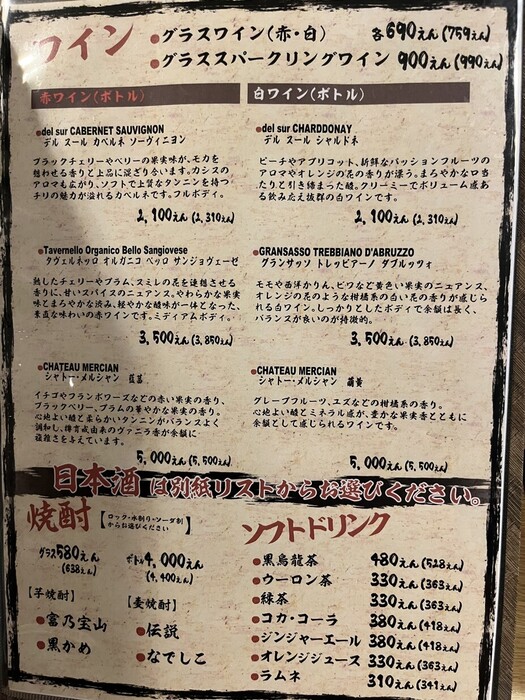 ワイン
●グラスワイン(赤・白) 各690えん(759えん)
●グラススパークリングワイン 900えん(990えん)
赤ワイン(ボトル)
●del sur CABERNET SAUVIGNON
デル スール カベルネ ソーヴィニヨン
ブラックチェリーやベリーの果実味が、モカを
想わせる香りと上品に混ざり合います。カシスの
アロマも広がり、ソフトで上質なタンニンを持つ
チリの魅力が溢れるカベルネです。フルボディ。
2,100えん(2,310えん)
●Tavernello Organico Bello Sangiovese
タヴェルネッロ オルガニコ ベッロ サンジョヴェーゼ
熟したチェリーやプラム、スミレの花を連想させる
香りに、甘いスパイスのニュアンス。やわらかな果実
味とまろやかな渋み、軽やかな酸味が一体となった、
素直な味わいの赤ワインです。ミディアムボディ。
3,500えん(3,850えん)
●CHATEAU MERCIAN
シャトー・メルシャン 藍茜
イチゴやフランボワーズなどの赤い果実の香り、
ブラックベリー、プラムの華やかな果実の香り。
心地よい酸と柔らかいタンニンがバランスよく
調和し、樽育成由来のヴァニラ香が余韻に
複雑さを与えています。
5,000えん(5,500えん)
白ワイン(ボトル)
●del sur CHARDDONAY
デル スール シャルドネ
ピーチやアプリコット、新鮮なパッションフルーツの
アロマやオレンジの花の香りが漂う。まろやかな口当
たりと引き締まった酸。クリーミーでボリューム感あ
る飲み応え抜群の白ワインです。
2,100えん(2,310えん)
●GRANSASSO TREBBIANO D'ABRUZZO
グランサッソ トレッビアーノ ダブルッツォ
モモや西洋かりん、ビワなど黄色い果実のニュアンス、
オレンジの花のような柑橘系の白い花の香りが感じら
れる白ワイン。しっかりとしたボディで余韻は長く、
バランスが良いのが特徴的。
3,500えん(3,850えん)
●CHATEAU MERCIAN
シャトー・メルシャン 萌黄
グレープフルーツ、ユズなどの柑橘系の香り。
心地よい酸とミネラル感が、豊かな果実香とともに
余韻として感じられるワインです。
5,000えん(5,500えん)
日本酒は別紙リストからお選びください。
焼酎
【ロック・水割り・ソーダ割
からお選びください】
グラス580えん
(638えん)
ボトル4,000えん
(4,400えん)
【芋焼酎】
●富乃宝山
●黒かめ
【麦焼酎】
●伝説
●なでしこ
ソフトドリンク
●黒烏龍茶 480えん(528えん)
●ウーロン茶 330えん(363えん)
●緑茶 330えん(363えん)
●コカ・コーラ 380えん(418えん)
●ジンジャーエール 380えん(418えん)
●オレンジジュース 330えん(363えん)
●ラムネ 310えん(341えん)